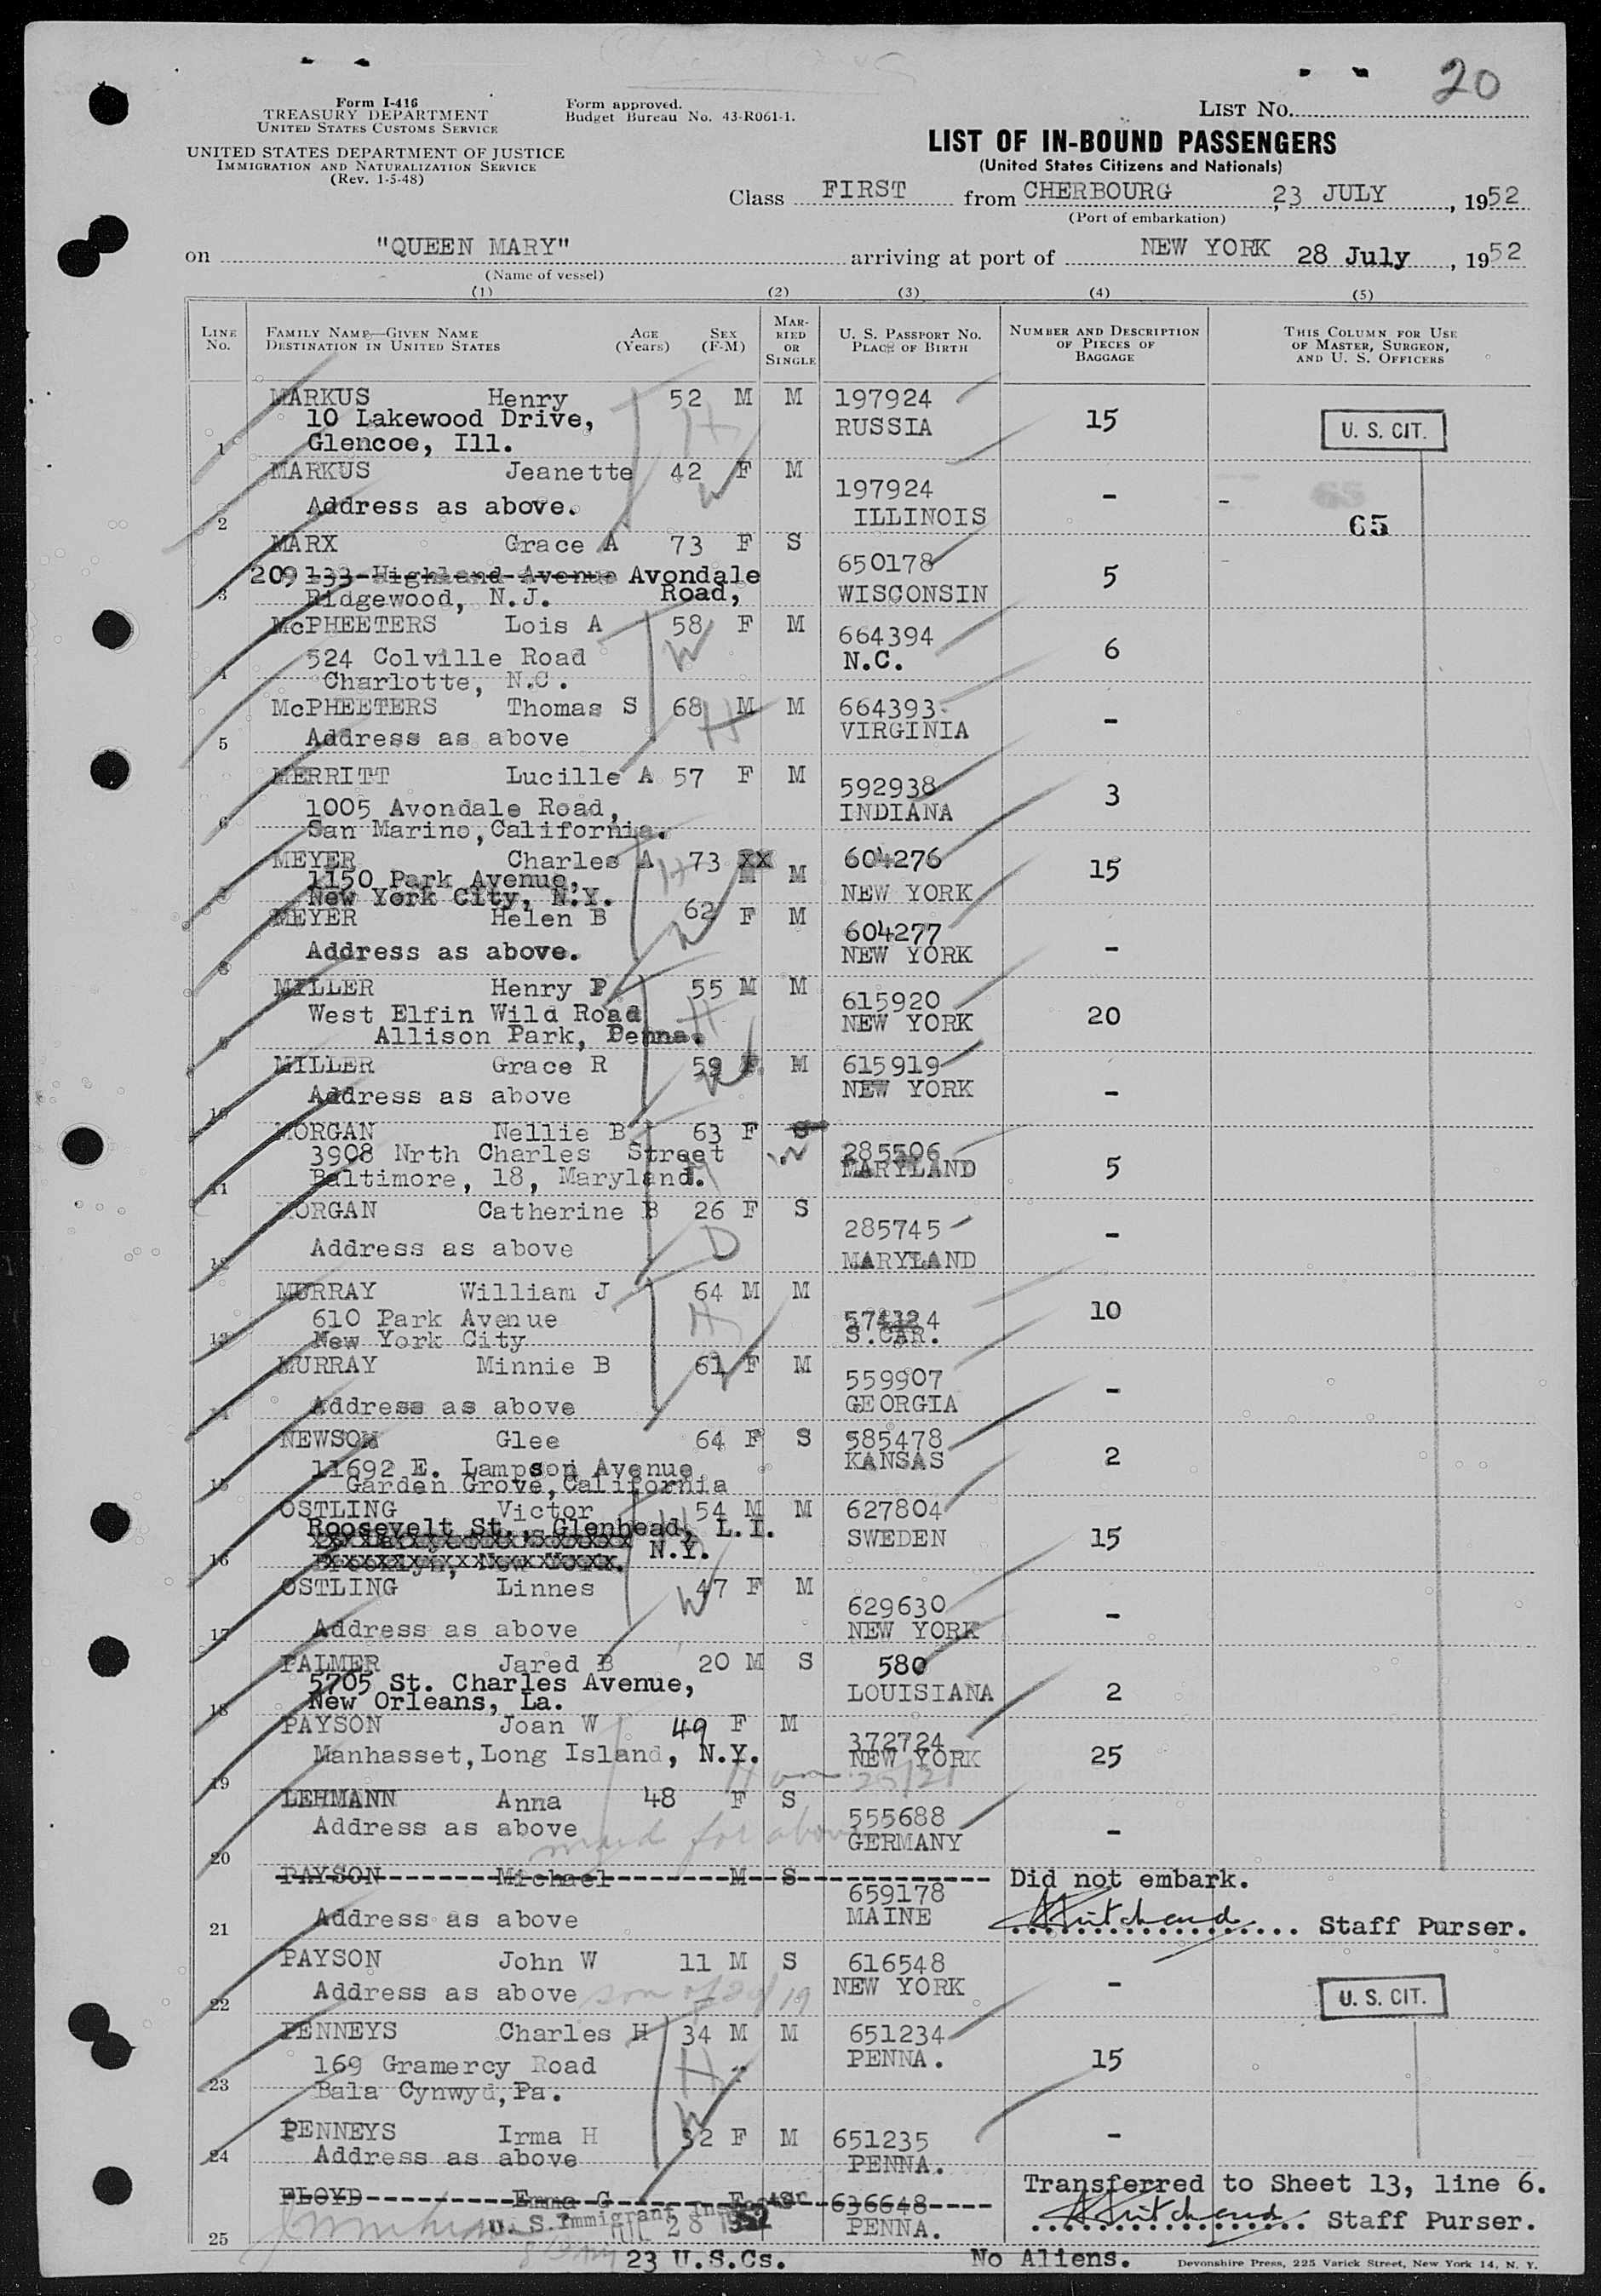 20
Form I-416
TREASURY DEPARTMENT
UNITED STATES CUSTOMS SERVICE
Form approved.
Budget Bureau No. 43-R061-1.
LIST NO.
UNITED STATES DEPARTMENT OF JUSTICE
IMMIGRATION AND NATURALIZATION SERVICE
(Rev. 1-5-48)
LIST OF IN-BOUND PASSENGERS
(United States Citizens and Nationals)
Class FIRST from CHERBOURG, 23 JULY, 1952
(Port of embarkation)
on "QUEEN MARY" arriving at port of NEW YORK 28 July, 1952
(Name of vessel)
(1) (2) (3) (4) (5)
LINE NO. FAMILY NAME—GIVEN NAME DESTINATION IN UNITED STATES AGE (Years) SEX (F-M) MARRIED OR SINGLE U. S. PASSPORT NO. PLACE OF BIRTH NUMBER AND DESCRIPTION OF PIECES OF BAGGAGE THIS COLUMN FOR USE OF MASTER, SURGEON, AND U. S. OFFICERS
MARKUS Henry 52 M M 197924
10 Lakewood Drive, RUSSIA 15 U. S. CIT.
1 Glencoe, Ill. H
MARKUS Jeanette 42 F M 197924
2 Address as above. W ILLINOIS - - 65
MARX Grace A 73 F S 650178
209 133 Highland Avenue Avondale 5
3 Ridgewood, N.J. Road, WISCONSIN
McPHEETERS Lois A 58 F M 664394
524 Colville Road W N.C. 6
4 Charlotte, N.C.
McPHEETERS Thomas S 68 M M 664393
5 Address as above H VIRGINIA -
MERRITT Lucille A 57 F M 592938
1005 Avondale Road, INDIANA 3
6 San Marino, California.
MEYER Charles A 73 XX 604276
1150 Park Avenue, H M M 15
New York City, N.Y. NEW YORK
MEYER Helen B 62 F M 604277
8 Address as above. W NEW YORK -
MILLER Henry P 55 M M 615920
West Elfin Wild Road H NEW YORK 20
9 Allison Park, Penna.
MILLER Grace R 59 F M 615919
10 Address as above W NEW YORK -
MORGAN Nellie B 63 F 285506
3908 Nrth Charles Street MARYLAND 5
11 Baltimore, 18, Maryland.
MORGAN Catherine B 26 F S 285745
12 Address as above D MARYLAND -
MURRAY William J 64 M M
610 Park Avenue H S.CAR. 10
13 New York City
MURRAY Minnie B 61 F M 559907
14 Address as above GEORGIA -
NEWSOM Glee 64 F S 585478
11692 E. Lampson Avenue KANSAS 2
15 Garden Grove, California
OSTLING Victor 54 M M 627804
Roosevelt St., Glenhead, L.I. SWEDEN 15
16 N.Y.
OSTLING Linnes 47 F M 629630
17 Address as above W NEW YORK -
PALMER Jared B 20 M S 580
5705 St. Charles Avenue, LOUISIANA 2
18 New Orleans, La.
PAYSON Joan W 49 F M 372724
Manhasset, Long Island, N.Y. NEW YORK 25
19
LEHMANN Anna 48 F S 555688
Address as above maid for above GERMANY -
20
PAYSON Michael M S Did not embark.
659178
21 Address as above MAINE Staff Purser.
PAYSON John W 11 M S 616548
22 Address as above son of 19 NEW YORK - U. S. CIT.
PENNEYS Charles H 34 M M 651234
169 Gramercy Road H PENNA. 15
23 Bala Cynwyd, Pa.
PENNEYS Irma H 32 F M 651235
24 Address as above W PENNA. -
Transferred to Sheet 13, line 6.
FLOYD Emma G F S 636648
25 U. S. Immigrant Inspector JUL 28 1952 PENNA. Staff Purser.
23 U.S.Cs. No Aliens.
Devonshire Press, 225 Varick Street, New York 14, N. Y.